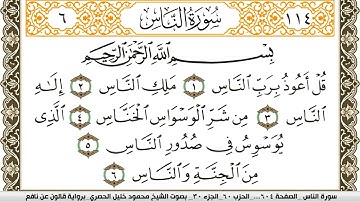 ٦ سُورَةُ النَّاسِ ١١٤
بِسْمِ اللَّهِ الرَّحْمَٰنِ الرَّحِيمِ
قُلْ أَعُوذُ بِرَبِّ النَّاسِ ١ مَلِكِ النَّاسِ ٢ إِلَٰهِ
النَّاسِ ٣ مِن شَرِّ الْوَسْوَاسِ الْخَنَّاسِ ٤ الَّذِي
يُوَسْوِسُ فِي صُدُورِ النَّاسِ ٥
مِنَ الْجِنَّةِ وَالنَّاسِ ٦
سورة الناس _ الصفحة ٦٠٤ ... الحزب ٦٠_ الجزء ٣٠_ بصوت الشيخ محمود خليل الحصري برواية قالون عن نافع